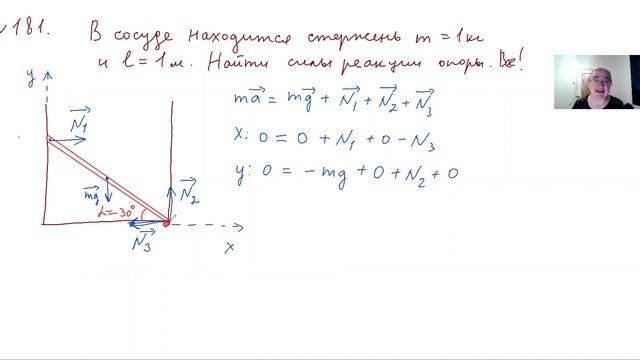 №181. В сосуде находится стержень m = 1 кг
и l = 1 м. Найти силы реакции опоры. Все!
y
N₁
mg
α=30°
N₂
N₃
x
ma = mg + N₁ + N₂ + N₃
x: 0 = 0 + N₁ + 0 - N₃
y: 0 = -mg + 0 + N₂ + 0